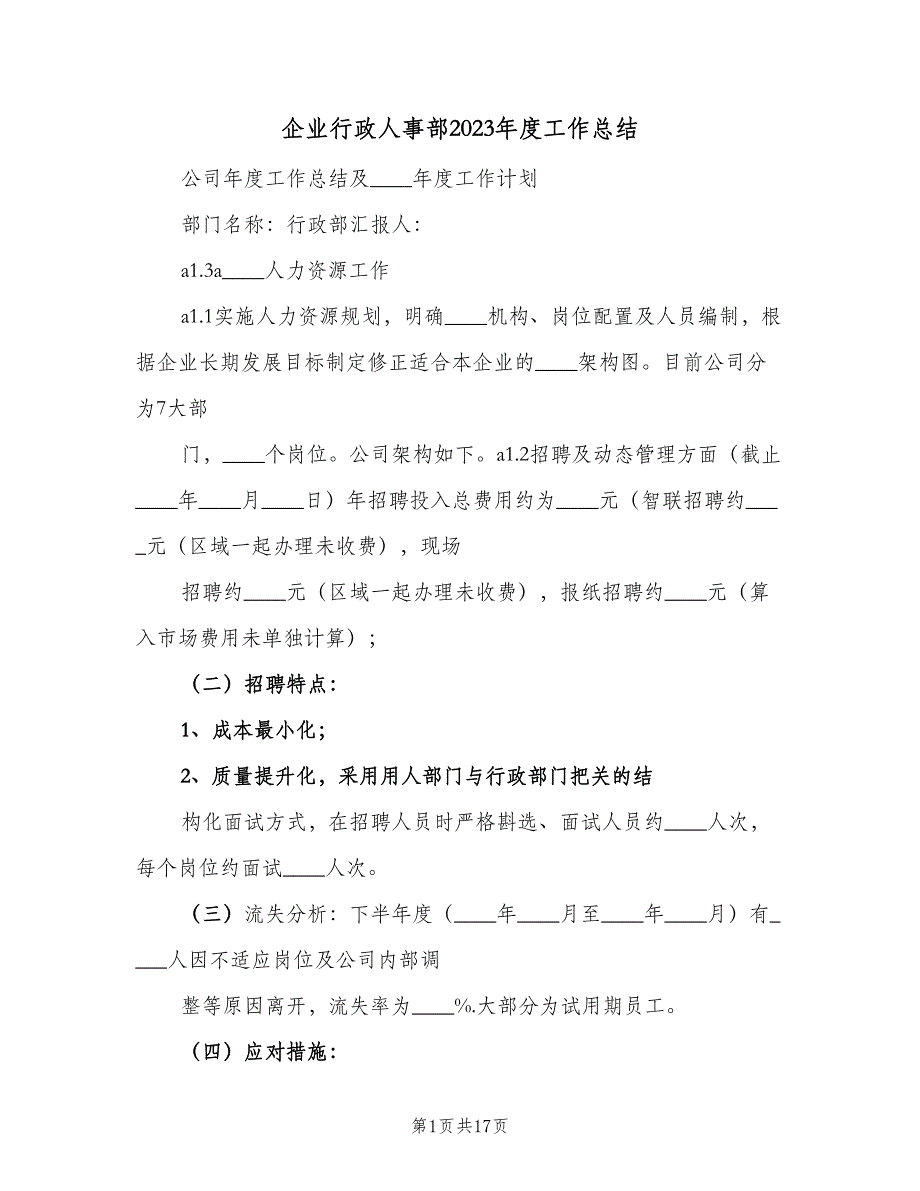 企业行政人事部2023年度工作总结
公司年度工作总结及____年度工作计划
部门名称：行政部汇报人：
a1.3a____人力资源工作
a1.1实施人力资源规划，明确____机构、岗位配置及人员编制，根
据企业长期发展目标制定修正适合本企业的____架构图。目前公司分
为7大部
门，____个岗位。公司架构如下。a1.2招聘及动态管理方面（截止
____年____月____日）年招聘投入总费用约为____元（智联招聘约___
_元（区域一起办理未收费），现场
招聘约____元（区域一起办理未收费），报纸招聘约____元（算
入市场费用未单独计算）；
（二）招聘特点：
1、成本最小化；
2、质量提升化，采用用人部门与行政部门把关的结
构化面试方式，在招聘人员时严格斟选、面试人员约____人次，
每个岗位约面试____人次。
（三）流失分析：下半年度（____年____月至____年____月）有_
___人因不适应岗位及公司内部调
整等原因离开，流失率为____%.大部分为试用期员工。
（四）应对措施：
第1页共17页